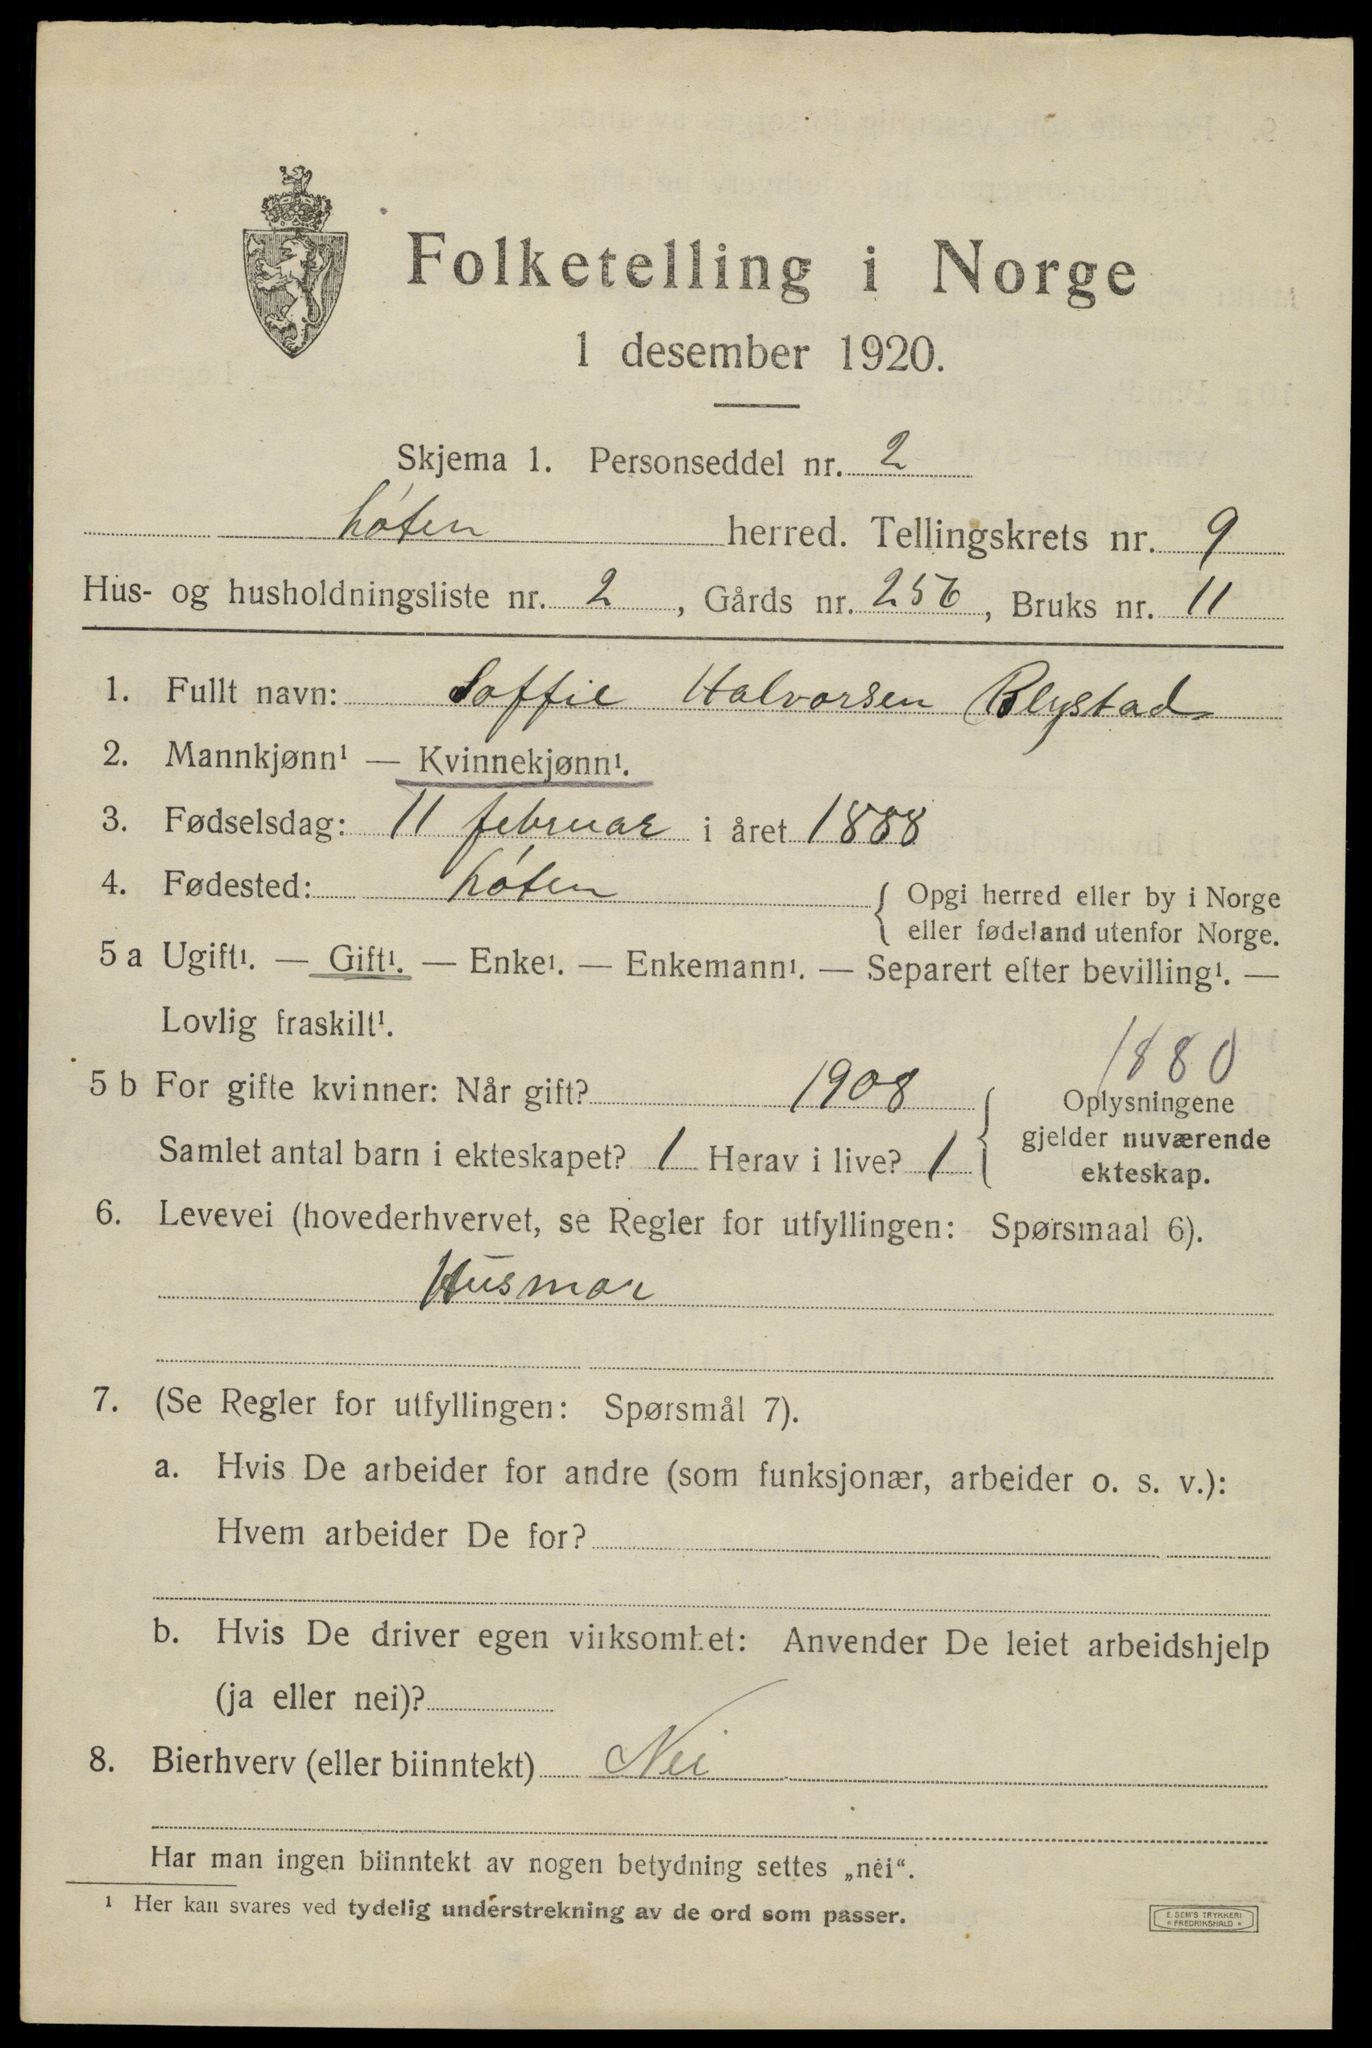 Folketelling i Norge
1 desember 1920.
Skjema 1. Personseddel nr. 2
Løten herred. Tellingskrets nr. 9
Hus- og husholdningsliste nr. 2, Gårds nr. 256, Bruks nr. 11
1. Fullt navn: Soffie Halvorsen Blystad
2. Mannkjønn¹ — Kvinnekjønn¹.
3. Fødselsdag: 11 februar i året 1888
4. Fødested: Løten { Opgi herred eller by i Norge
eller fødeland utenfor Norge.
5 a Ugift¹. — Gift¹. — Enke¹. — Enkemann¹. — Separert efter bevilling¹. —
Lovlig fraskilt¹.
1880
5 b For gifte kvinner: Når gift? 1908 { Oplysningene
gjelder nuværende
ekteskap.
Samlet antal barn i ekteskapet? 1 Herav i live? 1
6. Levevei (hovederhvervet, se Regler for utfyllingen: Spørsmaal 6).
Husmor
7. (Se Regler for utfyllingen: Spørsmål 7).
a. Hvis De arbeider for andre (som funksjonær, arbeider o. s. v.):
Hvem arbeider De for?
b. Hvis De driver egen virksomhet: Anvender De leiet arbeidshjelp
(ja eller nei)?
8. Bierhverv (eller biinntekt) Nei
Har man ingen biinntekt av nogen betydning settes „nei“.
¹ Her kan svares ved tydelig understrekning av de ord som passer.
E. SEM'S TRYKKERI
* FREDRIKSHALD *